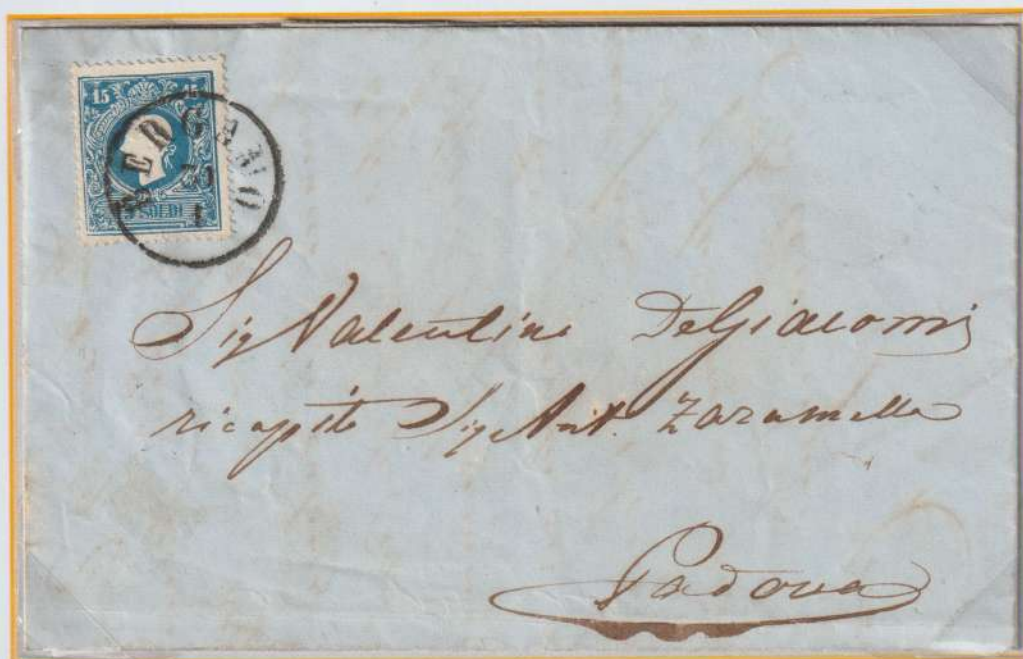 15
15 SOLDI
BERGAMO
30
1
Sig Valentino DeGiacomi
ricapito Sig Ant. Zaramella
Padova